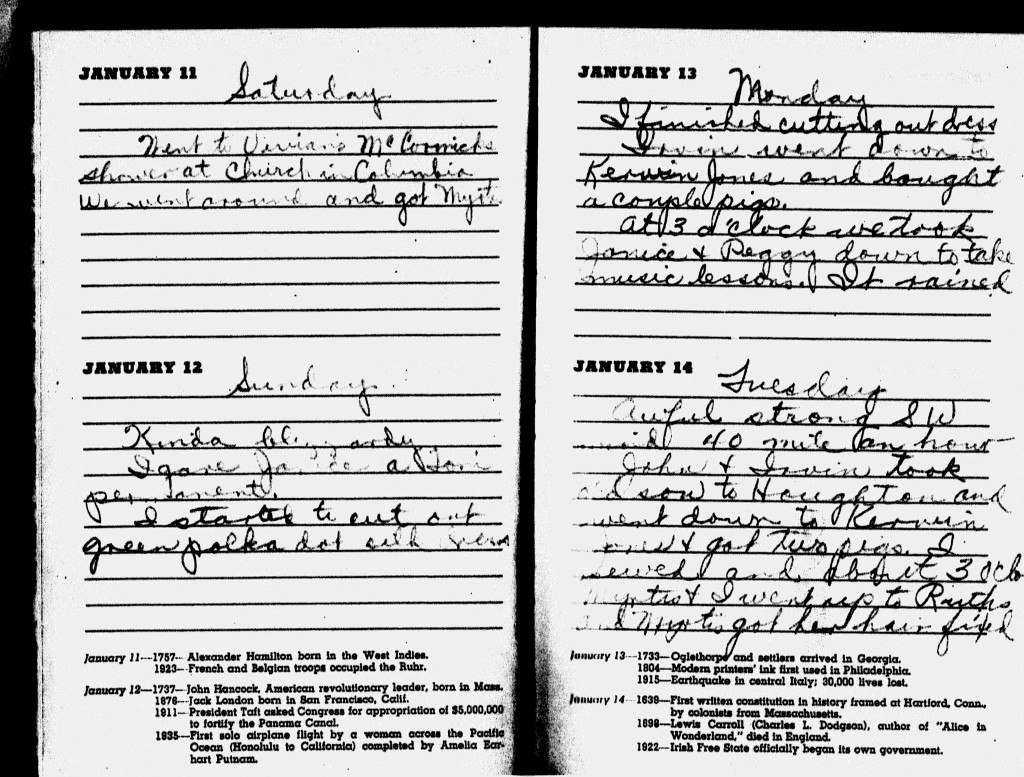 JANUARY 11
Saturday
Went to Vivians McCormicks
shower at Church in Columbia
We went around and got Myrt
JANUARY 12
Sunday
Kinda
I gave Janice a Toni
permanent.
I started to cut out
green polka dot silk dress
January 11—1757—Alexander Hamilton born in the West Indies.
1923—French and Belgian troops occupied the Ruhr.
January 12—1737—John Hancock, American revolutionary leader, born in Mass.
1876—Jack London born in San Francisco, Calif.
1911—President Taft asked Congress for appropriation of $5,000,000
to fortify the Panama Canal.
1935—First solo airplane flight by a woman across the Pacific
Ocean (Honolulu to California) completed by Amelia Ear-
hart Putnam.
JANUARY 13
Monday
I finished cutting out dress
Irvin went down to
Kerwin Jones and bought
a couple pigs.
At 3 o'clock we took
Janice & Peggy down to take
music lessons. It rained
JANUARY 14
Tuesday
Awful strong SW
wind 40 mile an hour
John & Irvin took
old sow to Houghton and
went down to Kerwin
Jones & got two pigs. I
sewed and about 3 oclo
Myrtis & I went up to Ruths
and Myrtis got her hair fixed
January 13—1733—Oglethorpe and settlers arrived in Georgia.
1804—Modern printers' ink first used in Philadelphia.
1915—Earthquake in central Italy; 30,000 lives lost.
January 14—1639—First written constitution in history framed at Hartford, Conn.,
by colonists from Massachusetts.
1898—Lewis Carroll (Charles L. Dodgson), author of "Alice in
Wonderland," died in England.
1922—Irish Free State officially began its own government.